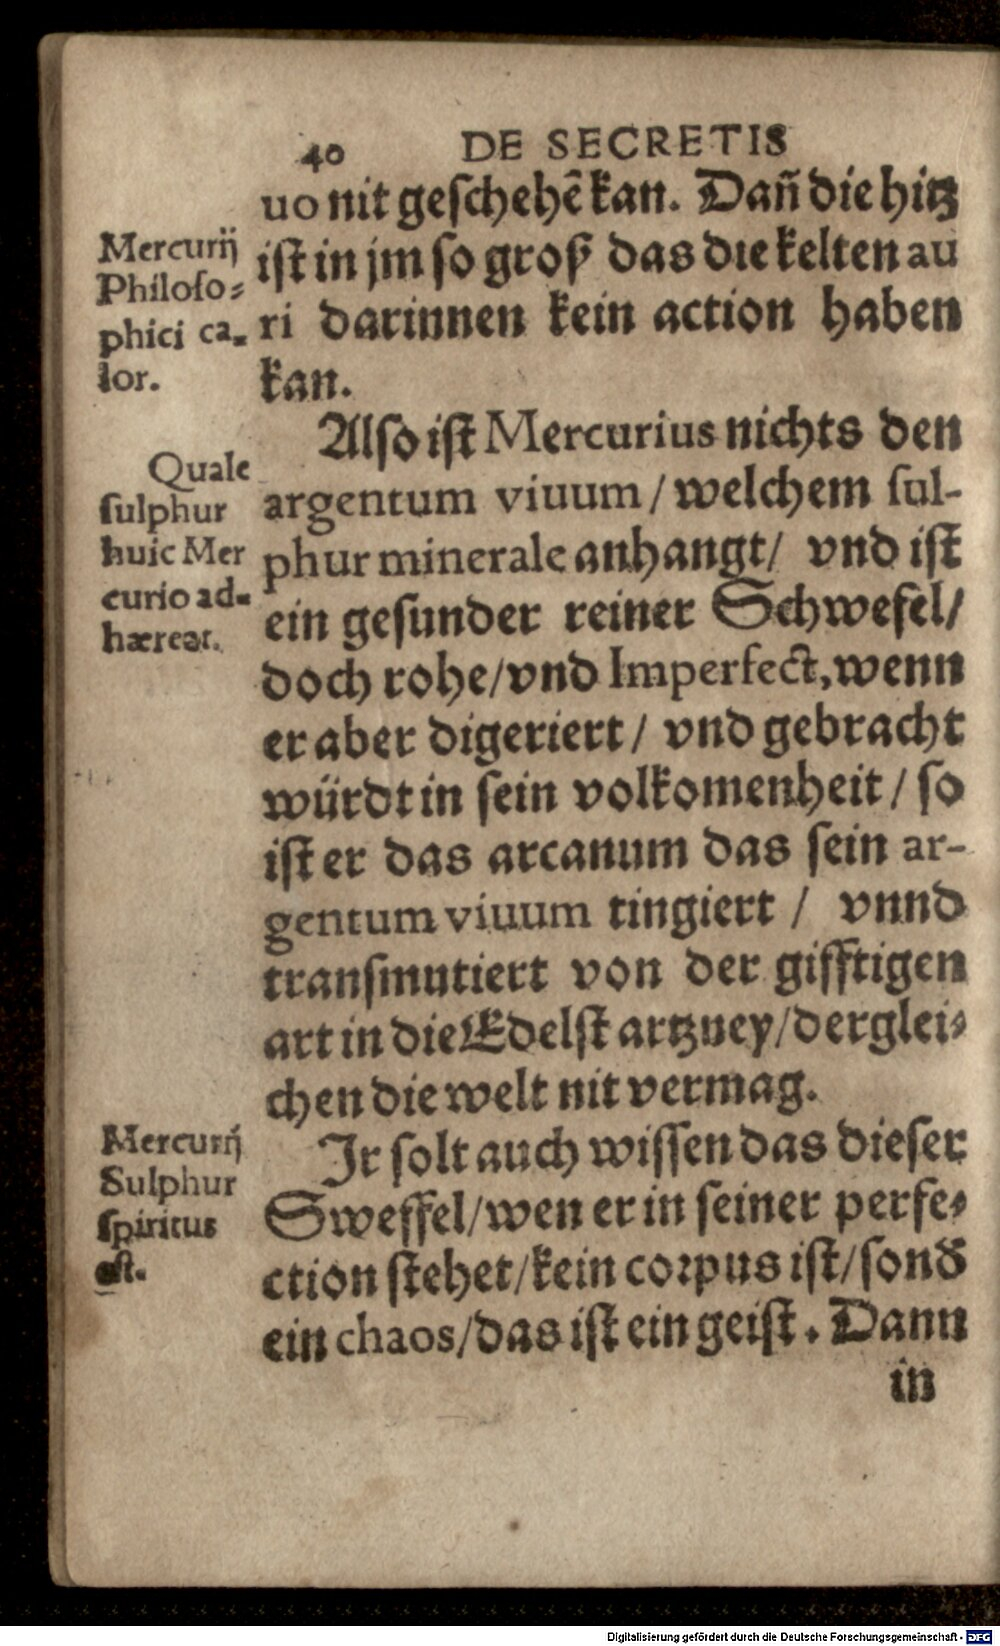 40 DE SECRETIS
uo nit geschehē kan. Dañ die hitz
ist in jm so groß das die kelten au
ri darinnen kein action haben
kan.
Mercurij
Philoso-
phici ca-
lor.
Also ist Mercurius nichts den
argentum viuum / welchem sul-
phur minerale anhangt / vnd ist
ein gesunder reiner Schwefel /
doch rohe / vnd Imperfect, wenn
er aber digeriert / vnd gebracht
würdt in sein volkomenheit / so
ist er das arcanum das sein ar-
gentum viuum tingiert / vnnd
transmutiert von der gifftigen
art in die Edelst artzney / derglei-
chen die welt nit vermag.
Quale
sulphur
huic Mer
curio ad-
hæreat.
Ir solt auch wissen das dieser
Sweffel / wen er in seiner perfe-
ction stehet / kein corpus ist / sond
ein chaos / das ist ein geist. Dann
Mercurij
Sulphur
spiritus
est.
in
Digitalisierung gefördert durch die Deutsche Forschungsgemeinschaft - DFG